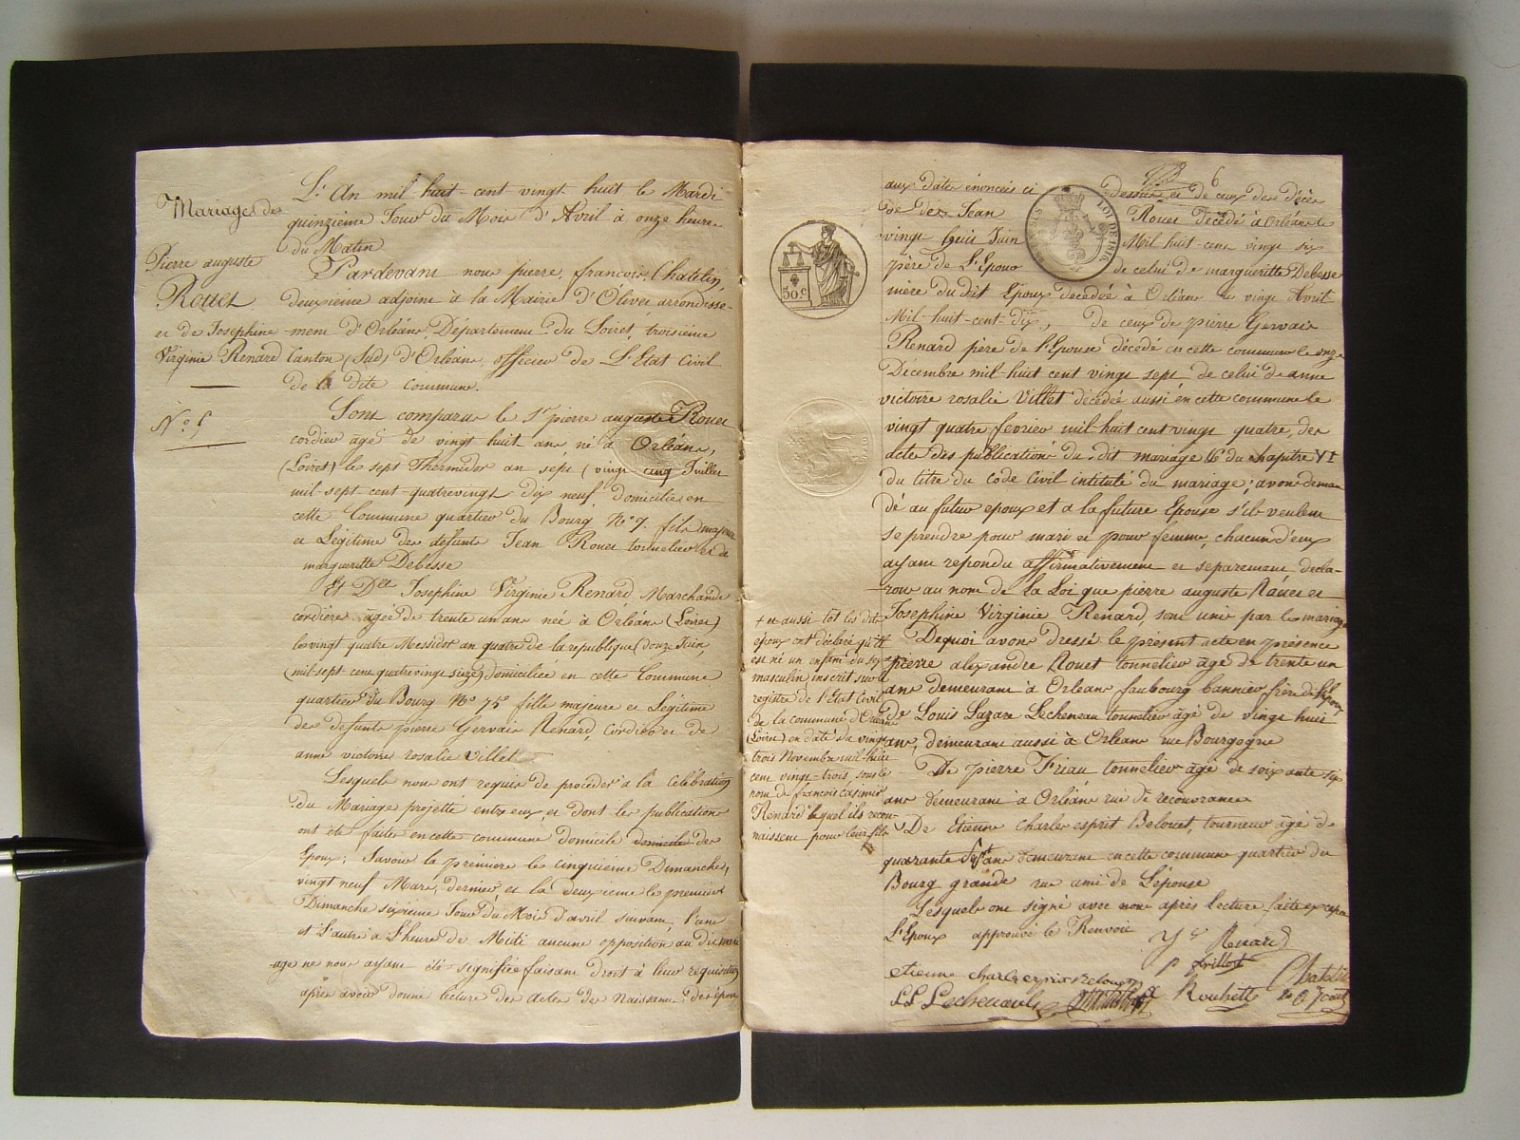 Mariage de
Pierre auguste
Rouet
et de Josephine
Virginie Renard
N.o 5
L'An mil huit-cent vingt huit le Mardi
quinzième Jour du Mois d'Avril à onze heures
du Matin
Pardevant nous pierre, francois, Chatelin,
deuxième adjoint à la Mairie d'Olivet arrondisse-
ment d'Orléans, Département du Loiret, troisième
Canton (Sud) d'Orléans, officier de L'Etat Civil
de la dite commune.
Sont comparus le Sr pierre auguste Rouet
cordier âgé de vingt huit ans, né à Orléans,
(Loiret) le sept Thermidor an sept (vingt cinq Juillet
mil-sept-cent-quatrevingt dix neuf domicilié en
cette Commune quartier du Bourg No 7. fils majeur
et Légitime des defunts Jean Rouet tonnelier et de
margueritte Debesse
Et Delle Josephine Virginie Renard Marchande
cordière âgée de trente un ans née à Orléans (Loiret)
le vingt quatre Messidor an quatre de la republique (douze Juin,
mil-sept cent quatrevingt seize) domiciliée en cette Commune
quartier du Bourg No 75 fille majeure et Légitime
des defunts pierre Gervais Renard, Cordier et de
anne victoire rosalie Villet
Lesquels nous ont requis de procéder à la Célébration
du Mariage projetté entre eux, et dont les publications
ont été faites en cette commune domicile domicile des
Epoux; Savoir la première le cinquieme Dimanche,
vingt neuf Mars, dernier et la deuxieme le premier
Dimanche sixieme Jour du Mois d'avril suivant, l'une
et L'autre à L'heure de Midi aucune opposition au dit mari
-age ne nous ayant été signifiée faisant droit à leur requisition
après avoir donné lecture des actes de Naissance des époux
6
aux dates énoncées ci dessus et de ceux des Décès
de des Jean Rouet Décédé à Orléans le
vingt huit Juin Mil huit-cent vingt six
père de L'Epoux de celui de margueritte Debesse
mère du dit Epoux decedée à Orléans le vingt Avril
Mil-huit-cent-dix, de ceux de pierre Gervais
Renard père de l'Epouse décédé en cette commune le onze
Décembre mil huit cent vingt sept de celui de anne
victoire rosalie Villet décédée aussi en cette commune le
vingt quatre fevrier mil huit cent vingt quatre, des
actes des publications du dit mariage & du chapitre VI
du titre du Code Civil intitulé du mariage; avons deman
dé au futur epoux et a la future Epouse s'ils veulent
se prendre pour mari et pour femme, chacun d'eux
ayant répondu affirmativement et separement decla-
rons au nom de la Loi que pierre auguste Rouet et
Josephine Virginie Renard, sont unis par le mariage
Dequoi avons dressé le présent acte en présence
pierre alexandre Rouet tonnelier âgé de trente un
ans demeurant à Orléans faubourg bannier frère de l'Epoux
De Louis Lazare Lecheneau tonnelier âgé de vingt huit
ans, demeurant aussi à Orleans rue Bourgogne
De pierre Friau tonnelier âgé de soixante six
ans demeurant à Orléans rue de recouvrance
De Etienne charles esprit Belouet, tourneur âgé de
quarante sept ans demeurant en cette commune quartier du
Bourg grande rue ami de L'épouse
Lesquels ont signé avec nous après lecture faite excepté
L'Epoux approuvé le Renvoi
+ et aussi-tôt les dits
epoux ont déclaré qu'il
est né un enfant du sexe
masculin, inscrit sur le
registre de l'Etat Civil
de la commune d'Orléans
(Loiret) en date du vingt
trois Novembre mil-huit
cent vingt-trois, sous le
nom de francois casimir
Renard lequel ils recon
naissent pour leur fils
50 c
LOI DE 1816
J V Renard
etienne charles esprit Belouet
Chatelin
Rouhette
L L Lecheneault